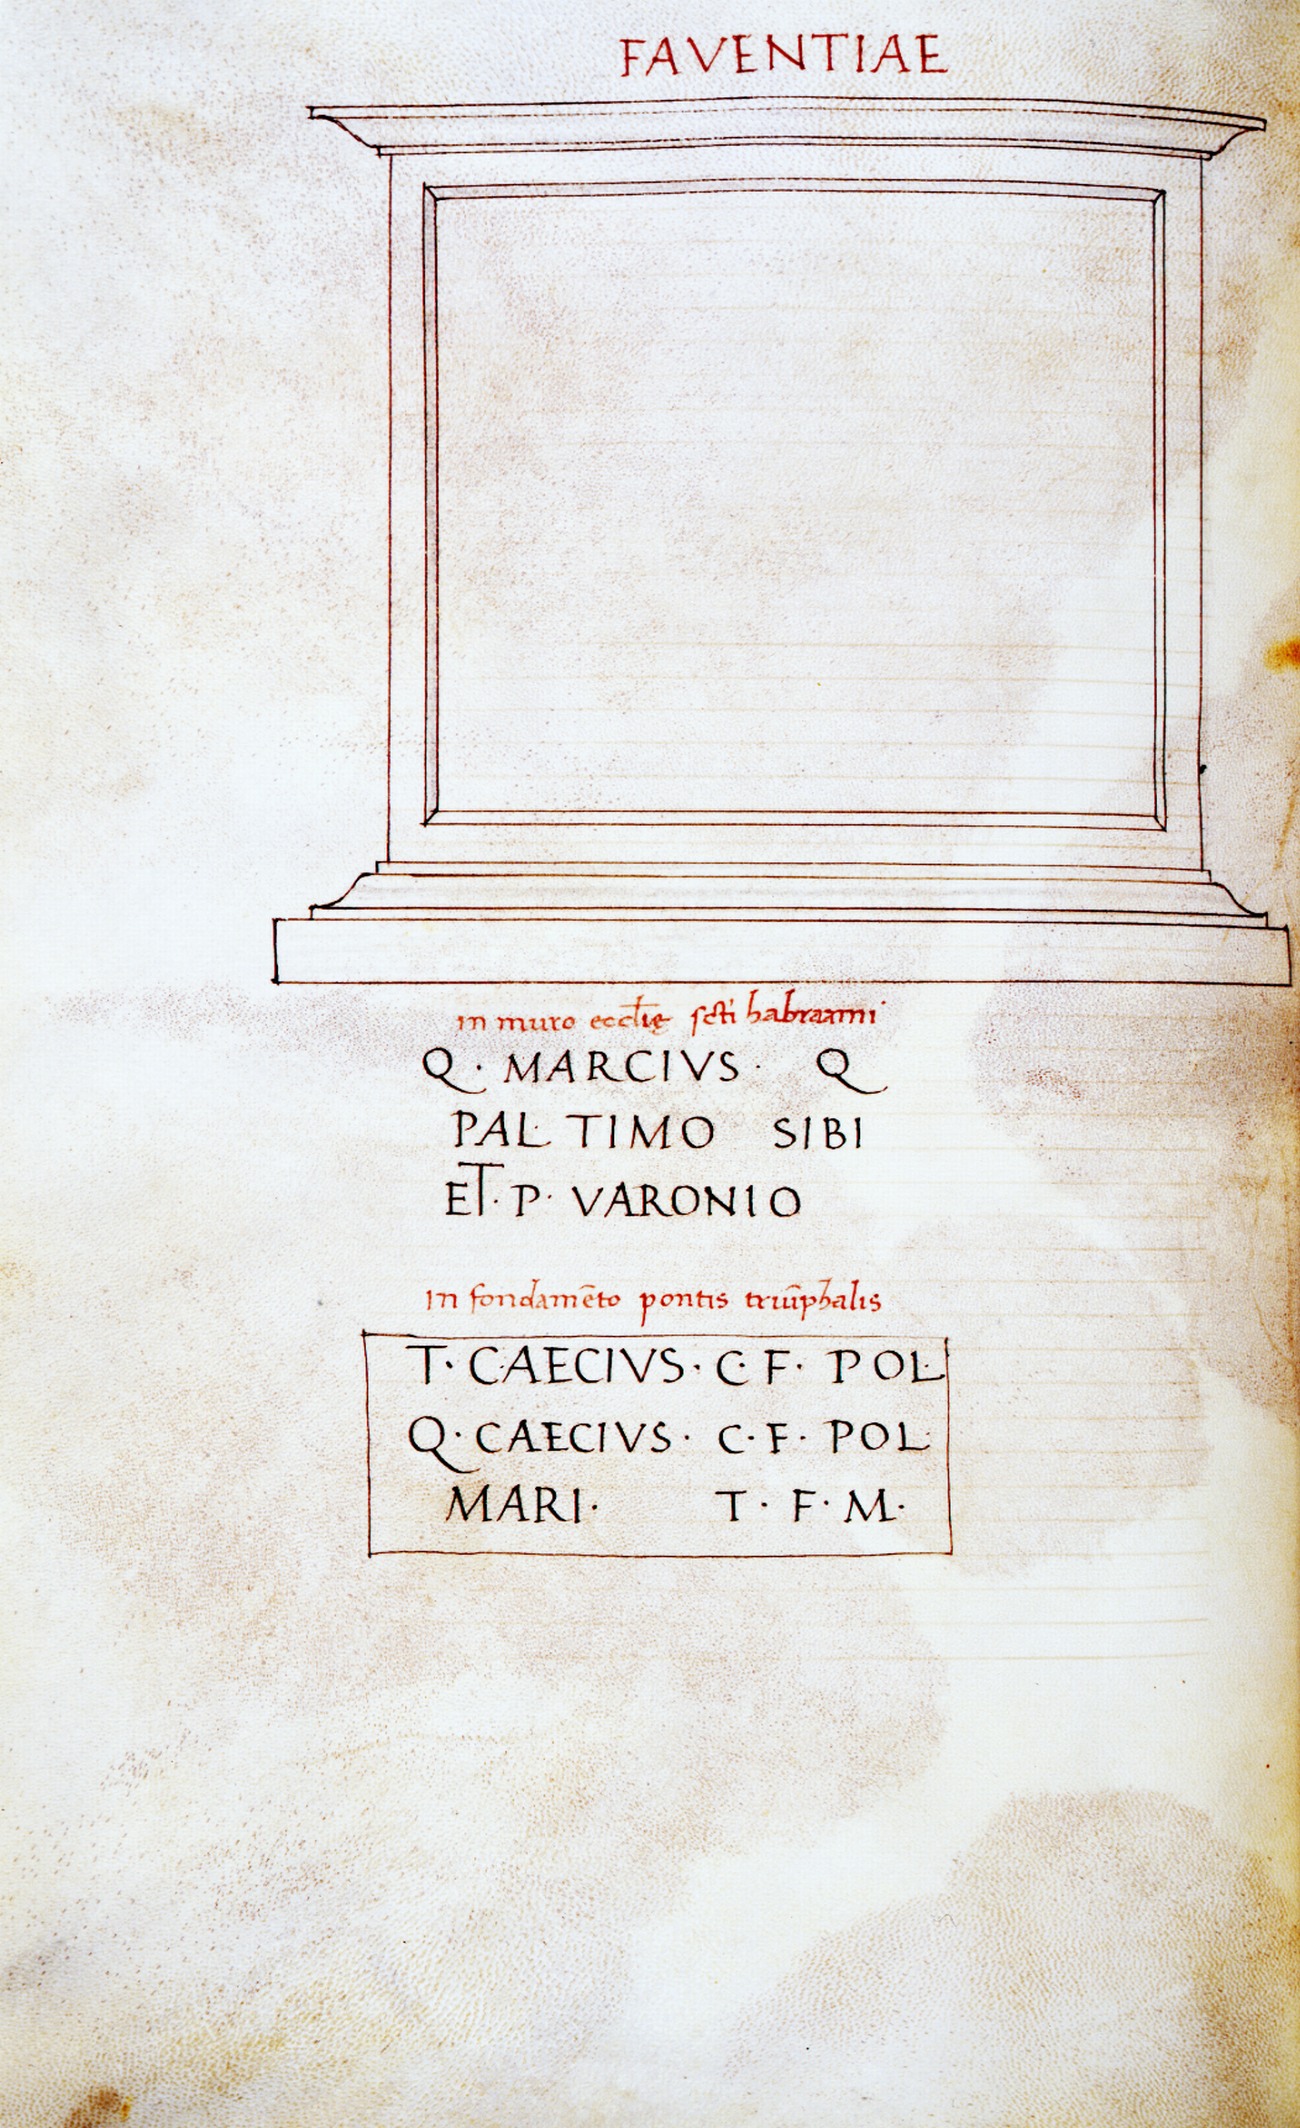 FAVENTIAE
in muro eccl̄ię sc̄ti habraami
Q · MARCIVS · Q
PAL TIMO SIBI
ET · P · VARONIO
In fondamēto pontis triūphalis
T · CAECIVS · C · F · POL
Q · CAECIVS · C · F · POL
MARI · T · F · M ·